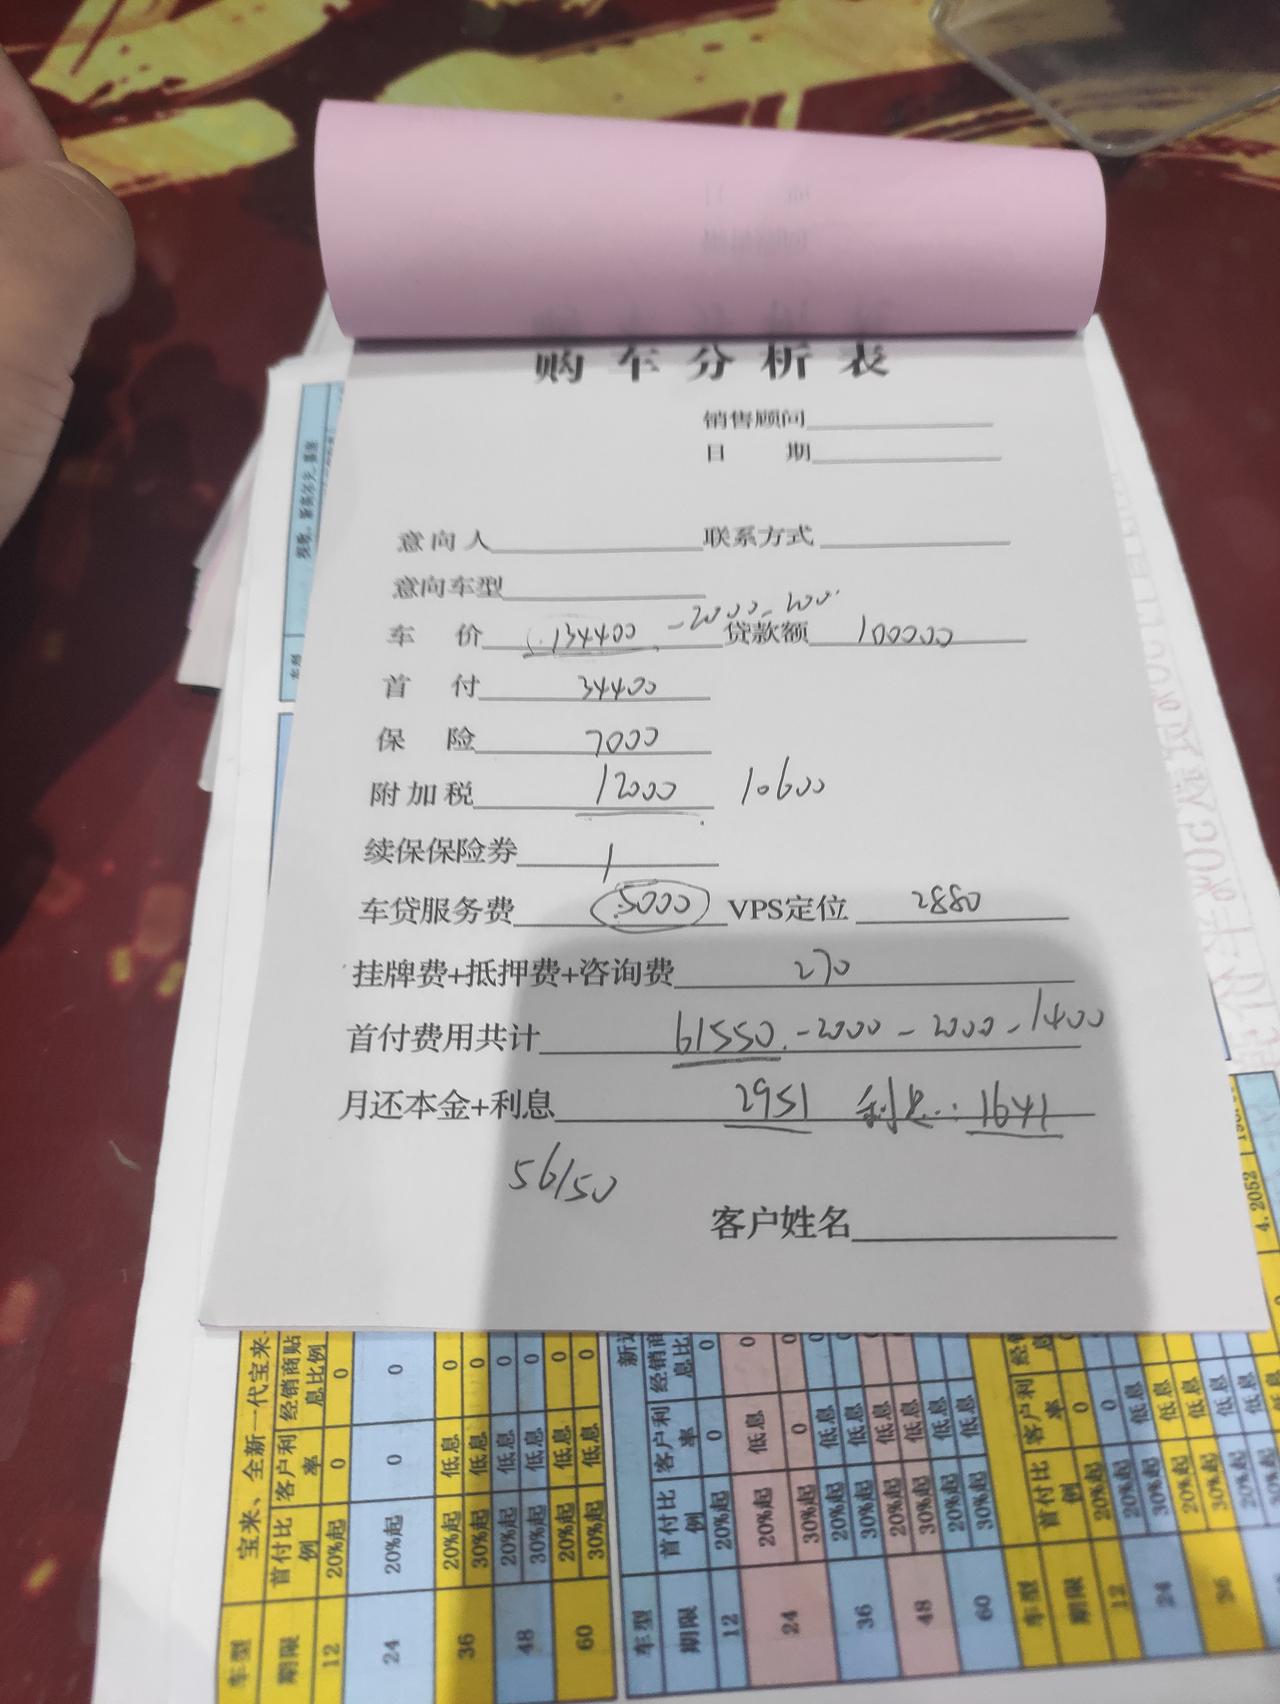 购车分析表
销售顾问
日 期
意向人 联系方式
意向车型
车 价 134400 -2000-2000 贷款额 100000
首 付 34400
保 险 7000
附加税 12000 10600
续保保险券 /
车贷服务费 5000 VPS定位 2880
挂牌费+抵押费+咨询费 270
首付费用共计 61550 -2000-2000-1400
月还本金+利息 2951 利息: 1641
56150
客户姓名
宝来、全新一代宝来
车型 期限 12 24 36 48 60
首付比例 20%起 20%起 20%起 30%起 20%起 30%起 20%起 30%起
客户利率 0 0 低息 低息 低息 低息 低息 低息
经销商贴息比例 0 0 0 0 0 0 0 0
车型 期限 12 24 36 48 60
首付比例 20%起 20%起 30%起 20%起 30%起 20%起 30%起 20%起 30%起
客户利率 0 低息 0 低息 低息 低息 低息 低息 低息
车型 期限 12 24 36
首付比例 20%起 20%起 30%起 20%起 30%起 20%起 30%起
客户利率 0 0 低息 低息 低息 低息 低息
4.2052